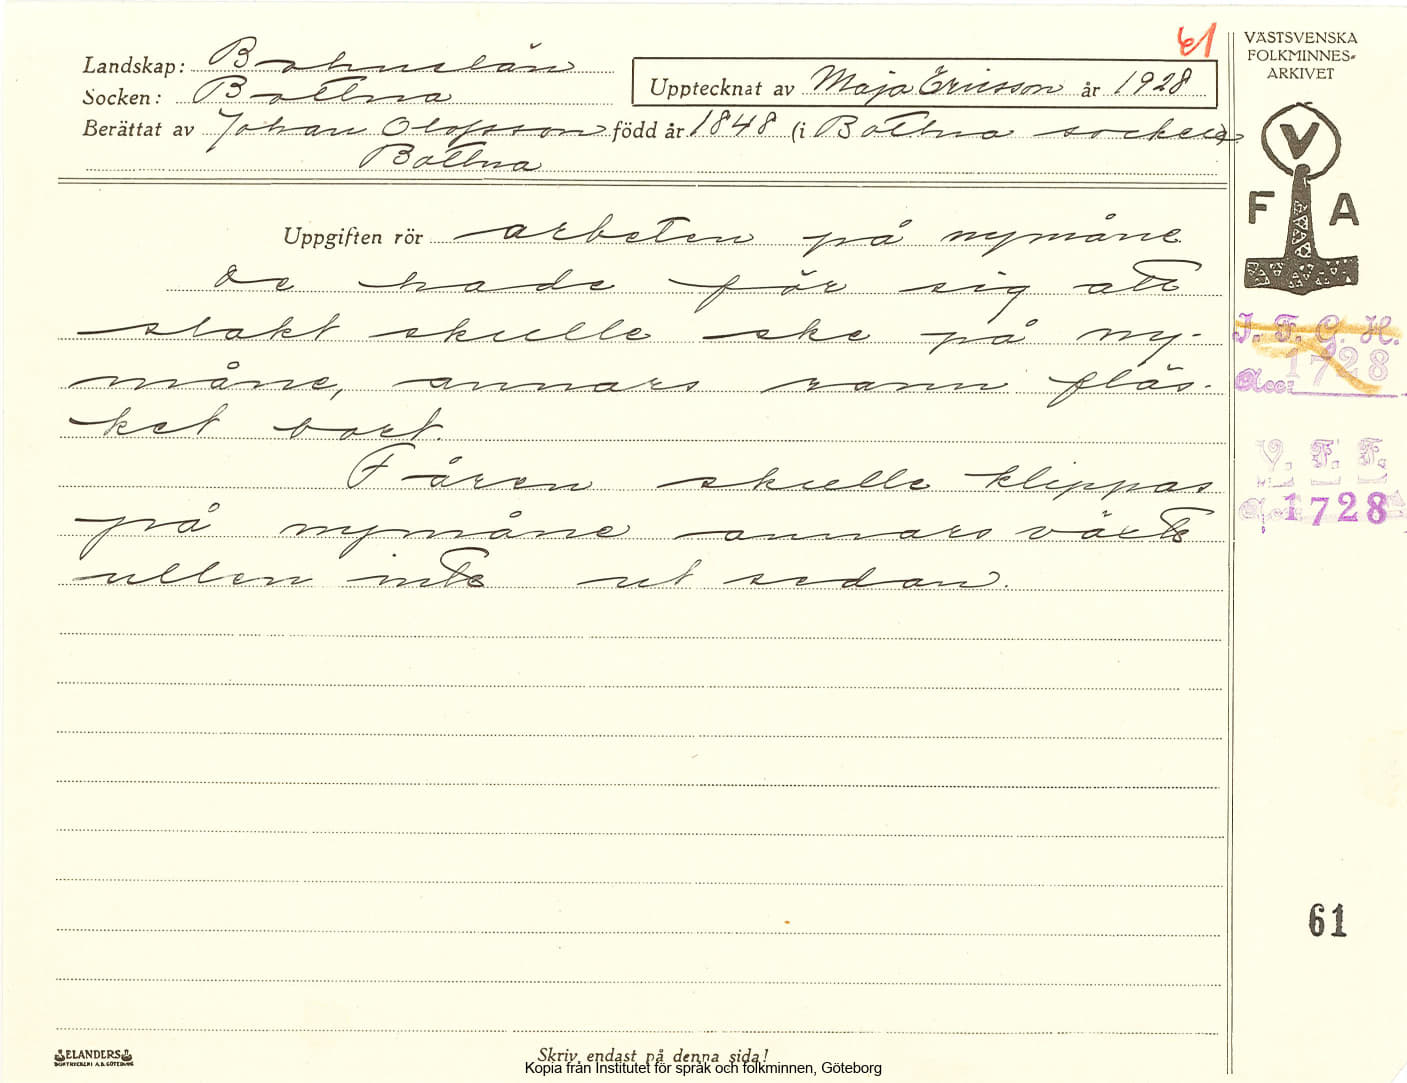 61
VÄSTSVENSKA
FOLKMINNES-
ARKIVET
Landskap: Bohuslän
Socken: Bottna
Upptecknat av Maja Ericsson år 1928
Berättat av Johan Olofsson född år 1848 (i Bottna socken)
Bottna
V
F A
Uppgiften rör arbeten på nymåne
De hade för sig att
slakt skulle ske på ny-
måne, annars rann fläs-
ket bort.
Fåren skulle klippas
på nymåne annars växte
ullen inte ut sedan.
I. F. G. H.
Acc: 1728
V. F. F.
1728
61
ELANDERS
BOKTRYCKERI A.B. GÖTEBORG
Skriv endast på denna sida!
Kopia från Institutet för språk och folkminnen, Göteborg